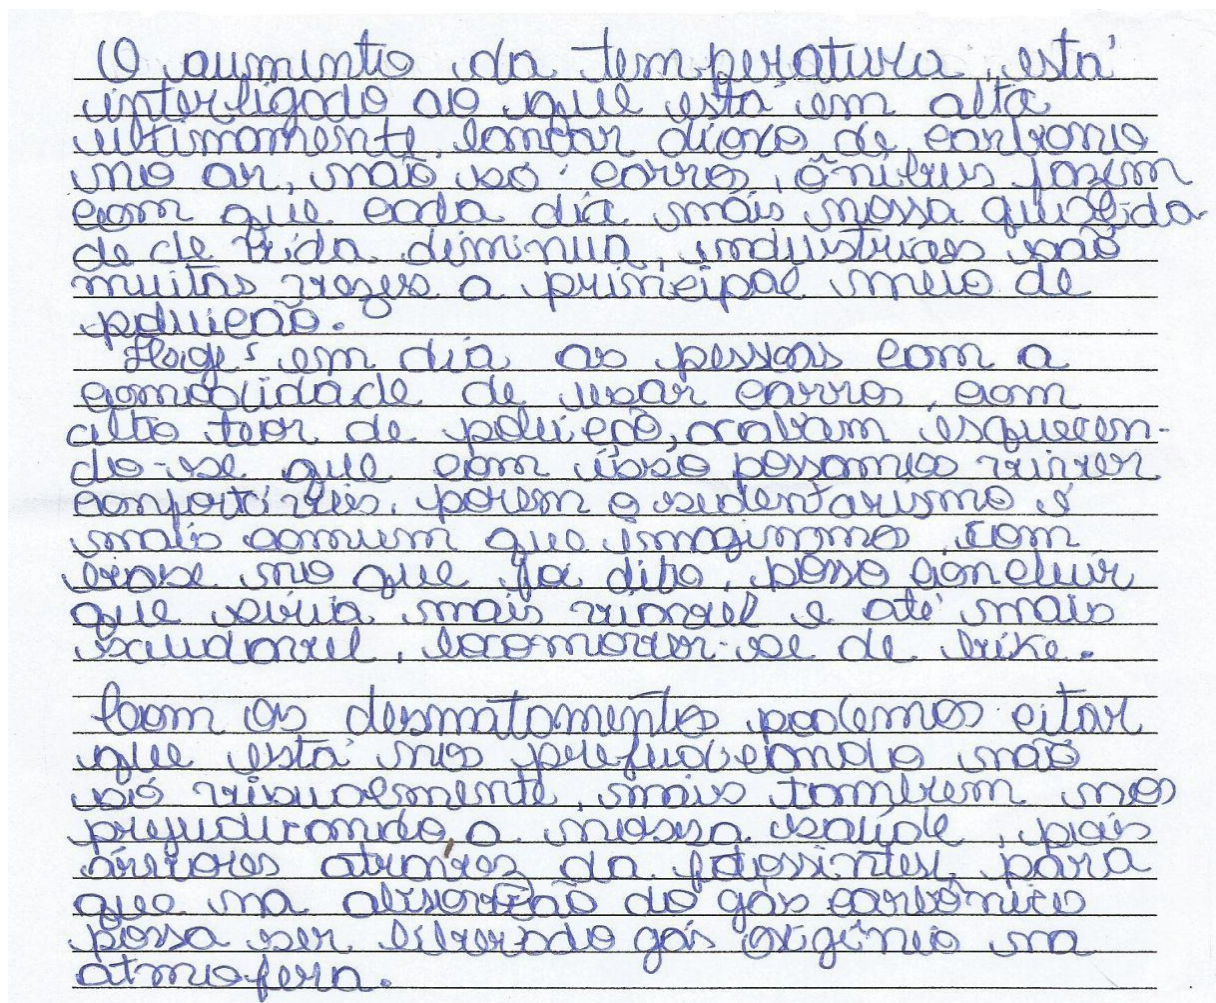 O aumento da temperatura, está
interligado ao que está em alta
ultimamente, lançar dioxo de carbono
no ar, não só carros, ônibus fazem
com que cada dia mais nossa qualida
de de vida diminua, industrias são
muitas vezes a principal meio de
poluição.
Hoje em dia as pessoas com a
comodidade de usar carros, com
alto teor de poluição, acabam esquecen-
do-se que com isso possamos viver
confortáveis, porem o sedentarismo é
mais comum que imaginamo, com
base no que foi dito, posso concluir
que seria mais viavél e até mais
saudavel, locomover-se de bike.
Com os desmatamentos podemos citar
que está nos prejudicando não
só visualmente, mais tambem nos
prejudicando a nossa saúde, pois
árvores atravez da fotossintes, para
que na absorção do gás carbônico
possa ser liberado gás oxigênio na
atmofera.